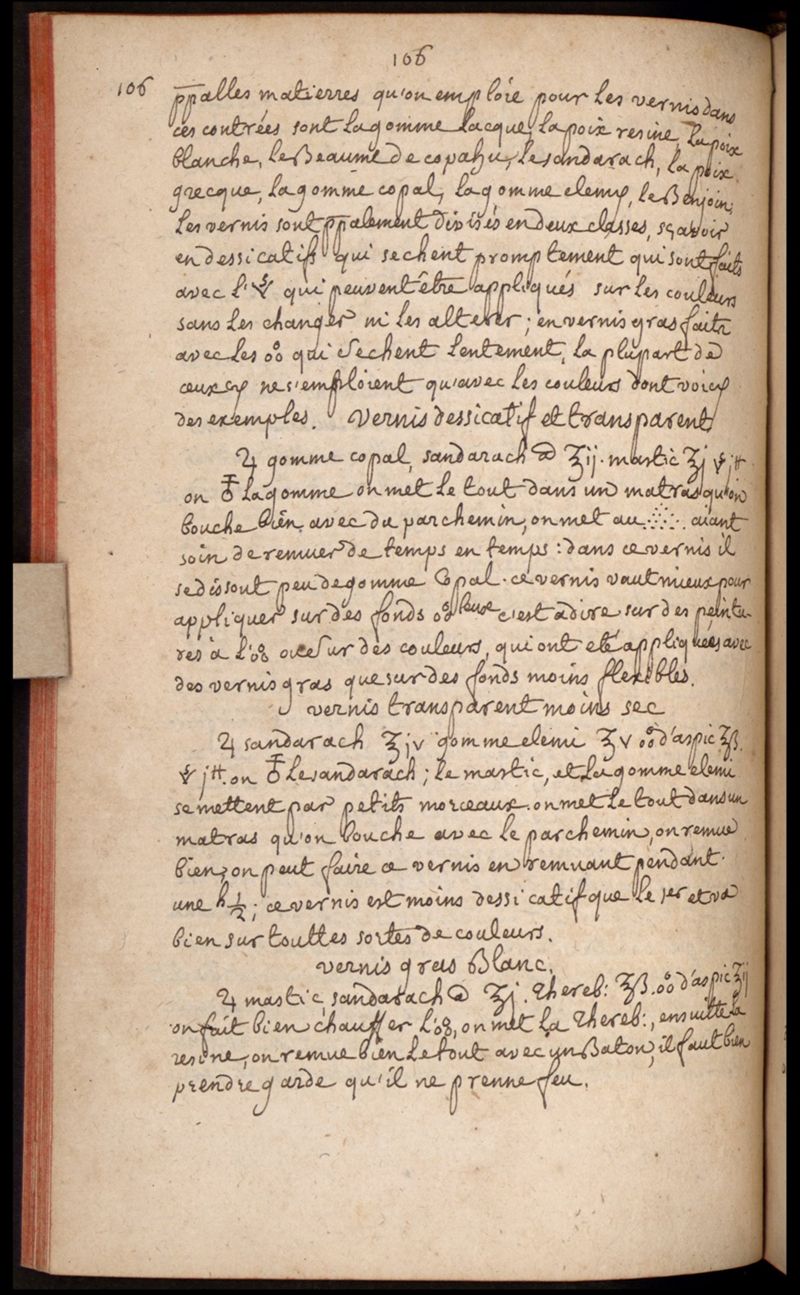 106
106
ppalles matierres qu'on emploïe pour les vernis dans
ces contrées sont la gomme lacque, la poix resine, la poix
blanche, le Beaume de copahu, le sandarach, la poix
grecque, la gomme copal, la gomme elemy, le Benjoin,
Les vernis sont ppalement divisés en deux classes, sçavoir
en dessicatifs qui sechent promptement qui sont faits
avec l' qui peuvent être appliqués sur les couleurs
sans les changer ni les alterer; en vernis gras faits
avec les qui sechent lentement, la plupart de
ceux cy ne s'emploient qu'avec les couleurs dont voicy
des exemples. vernis dessicatif et transparent
♃ gomme copal, sandarach ʒij. mastic ʒj jtt
on la gomme on met le tout dans un matras qu'on
bouche bien avec du parchemin, on met au aiant
soin de remuer de temps en temps: dans ce vernis il
se dissout peu de gomme Copal. ce vernis vaut mieux pour
appliquer sur des fonds c'est a dire sur des peintu-
res à l' sur des couleurs, qui ont eté appliquées avec
des vernis gras que sur des fonds moins flexibles.
vernis transparent moins sec
♃ sandarach ʒiv gomme elemi ʒv d'aspic ʒß.
jtt. on le sandarach; le mastic, et la gomme elemi
se mettent par petits morceaux. on met le tout dans un
matras qu'on bouche avec le parchemin, on remue
bien, on peut faire ce vernis en remuant pendant
une h ½; ce vernis est moins dessicatif que le 1er et va
bien sur touttes sortes de couleurs.
vernis gras Blanc.
♃ mastic, sandarach ʒj. thereb: ʒß. d'aspic ʒij
on fait bien chauffer l', on met la thereb:, ensuitte la
resine, on remue bien le tout avec un Baton, il faut bien
prendre garde qu'il ne prenne feu.